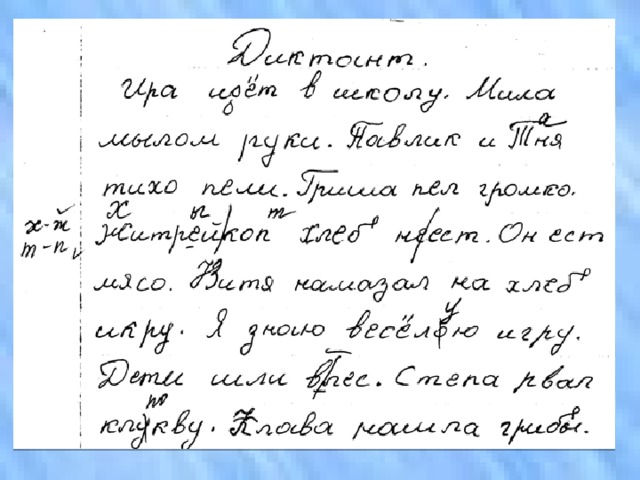 Диктант.
Ира идёт в школу. Мила
а
мылом руки. Павлик и Тня
тихо пели. Гриша пел громко.
х ы т
х-ж
Житрейкоп хлеб неест. Он ест
т-п
мясо. Витя намазал на хлеб
у
икру. Я знаю весёлою игру.
Дети шли влес. Степа рвал
ю
клукву. Клава нашла грибы.